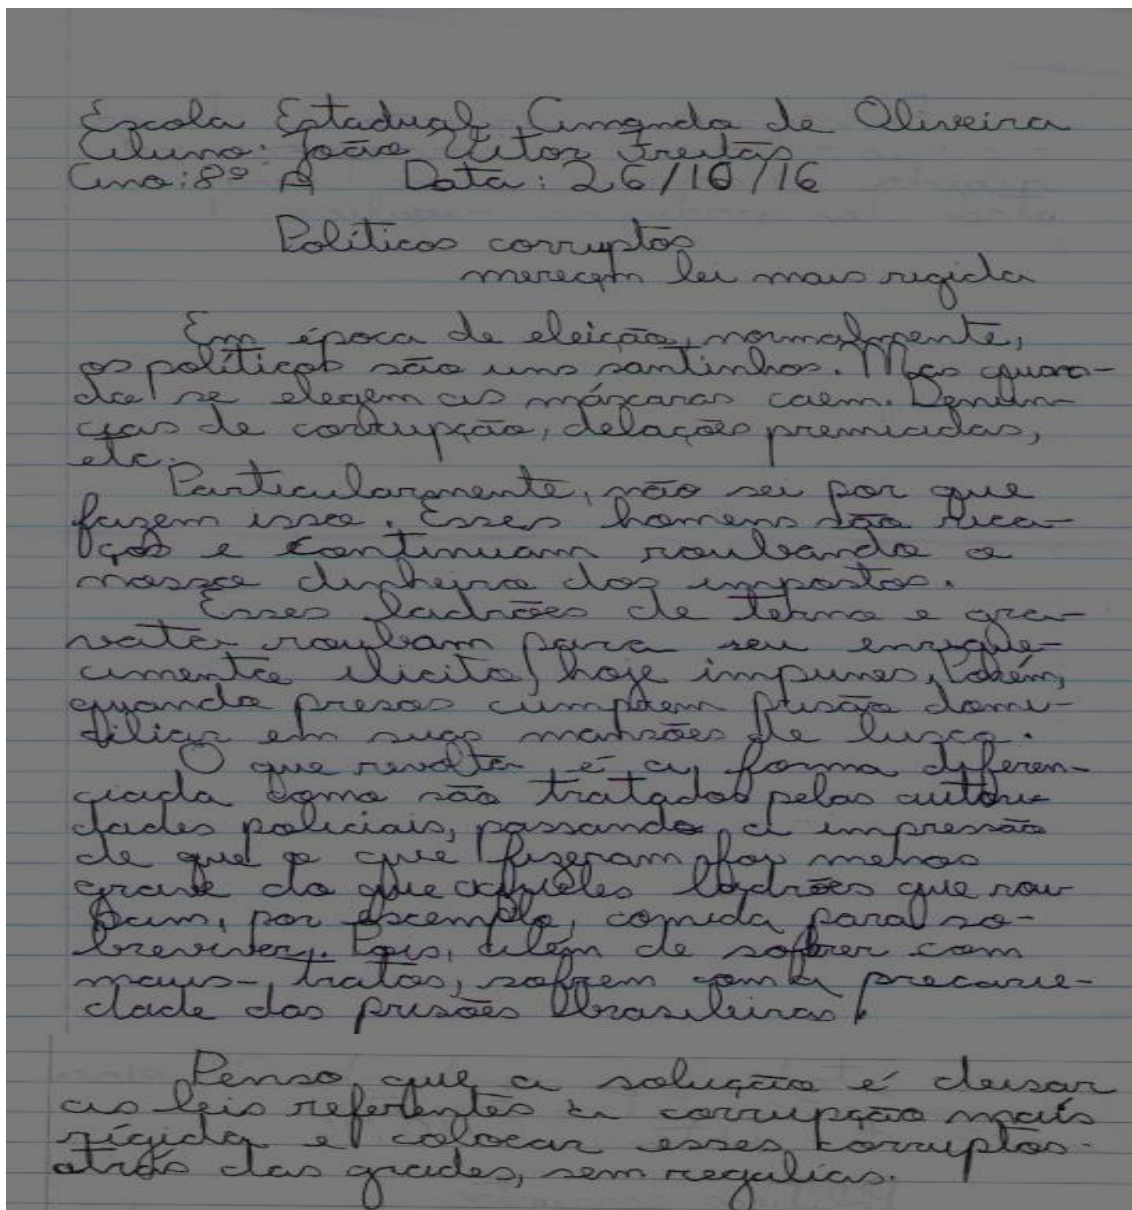 Escola Estadual Amanda de Oliveira
Aluno: João Vitor Freitas
Ano: 8º A Data: 26/10/16
Políticos corruptos
merecem lei mais rigida
Em época de eleição, normalmente,
os políticos são uns santinhos. Mas quan-
do se elegem as máscaras caem. Denún-
cias de corrupção, delações premiadas,
etc.
Particularmente, não sei por que
fazem isso. Esses homens são rica-
ços e continuam roubando o
nosso dinheiro dos impostos.
Esses ladrões de terno e gra-
vata roubam para seu enrique-
cimento ilicito, hoje impunes, Porém,
quando presos cumprem prisão domi-
ciliar em suas mansões de luxo.
O que revolta é a forma diferen-
ciada como são tratados pelas autori-
dades policiais, passando a impressão
de que o que fizeram foi menos
grave do que aqueles ladrões que rou
bam, por exemplo, comida para so-
breviver. Pois, além de sofrer com
maus-tratos, sofrem com a precarie-
dade das prisões brasileiras.
Penso que a solução é deixar
as leis referentes a corrupção mais
rígida e colocar esses corruptos
atrás das grades, sem regalias.